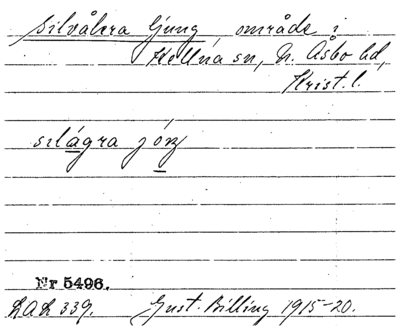 Silvåkra Ljung, område i
Hellna sn, N. Åsbo hd,
Krist. l.
sılågra jóŋ
Nr 5496.
LAL 339. Gust. Billing 1915-20.